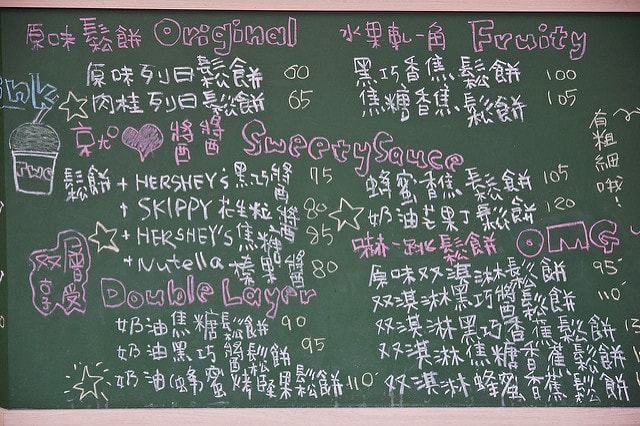 原味鬆餅 Original
原味列日鬆餅 60
肉桂列日鬆餅 65
ink
TWC
醬醬 Sweety Sauce
鬆餅 + HERSHEY'S 黑巧醬 75
+ SKIPPY 花生粒醬 80
+ HERSHEY'S 焦糖醬 85
+ Nutella 榛果醬 80
双層享受
Double Layer
奶油焦糖鬆餅 90
奶油黑巧醬鬆餅 95
奶油蜂蜜烤堅果鬆餅 110
水果軋一角 Fruity
黑巧香焦鬆餅 100
焦糖香焦鬆餅 105
有粗細哦!
蜂蜜香焦鬆餅 105
奶油芒果丁鬆餅 120
嚇一跳鬆餅 OMG
原味双淇淋鬆餅 95
双淇淋黑巧醬鬆餅 110
双淇淋黑巧香蕉鬆餅
双淇淋焦糖香蕉鬆餅
双淇淋蜂蜜香蕉鬆餅